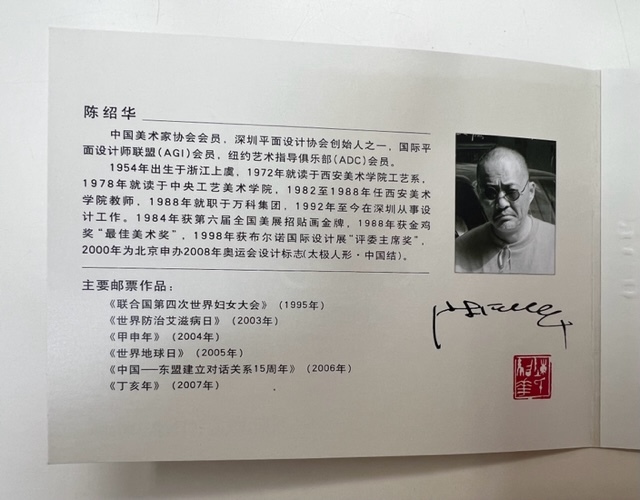 陈绍华
中国美术家协会会员，深圳平面设计协会创始人之一，国际平
面设计师联盟(AGI)会员，纽约艺术指导俱乐部(ADC)会员。
1954年出生于浙江上虞，1972年就读于西安美术学院工艺系，
1978年就读于中央工艺美术学院，1982至1988年任西安美术
学院教师，1988年就职于万科集团，1992年至今在深圳从事设
计工作。1984年获第六届全国美展招贴画金牌，1988年获金鸡
奖“最佳美术奖”，1998年获布尔诺国际设计展“评委主席奖”，
2000年为北京申办2008年奥运会设计标志(太极人形·中国结)。
主要邮票作品：
《联合国第四次世界妇女大会》（1995年）
《世界防治艾滋病日》（2003年）
《甲申年》（2004年）
《世界地球日》（2005年）
《中国——东盟建立对话关系15周年》（2006年）
《丁亥年》（2007年）